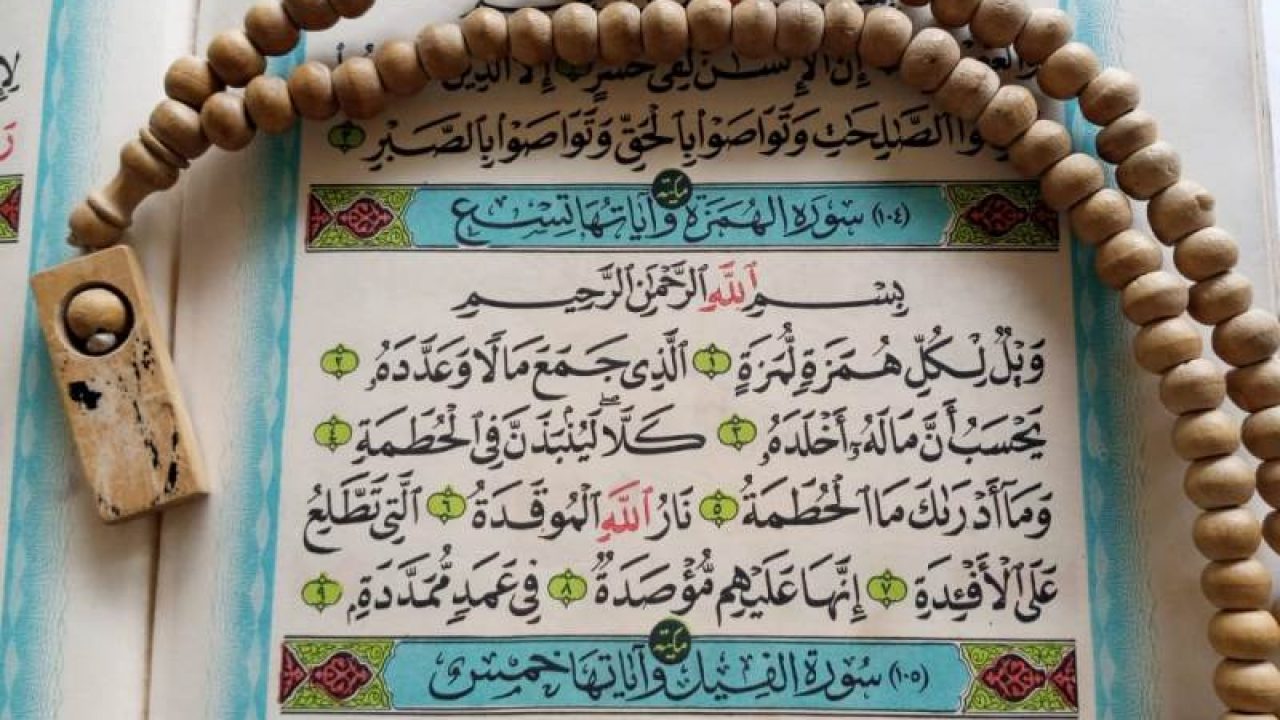 إِنَّ الْإِنسَٰنَ لَفِى خُسْرٍ ۝ إِلَّا الَّذِينَ
الصَّٰلِحَٰتِ وَتَوَاصَوْا۟ بِالْحَقِّ وَتَوَاصَوْا۟ بِالصَّبْرِ ٣
مكية
(١٠٤) سُورَة الهُمَزَة وَآيَاتهَا تِسْع
بِسْمِ ٱللَّهِ ٱلرَّحْمَٰنِ ٱلرَّحِيمِ
وَيْلٌ لِّكُلِّ هُمَزَةٍ لُّمَزَةٍ ١ ٱلَّذِى جَمَعَ مَالًا وَعَدَّدَهُۥ ٢
يَحْسَبُ أَنَّ مَالَهُۥٓ أَخْلَدَهُۥ ٣ كَلَّا ۖ لَيُنۢبَذَنَّ فِى ٱلْحُطَمَةِ ٤
وَمَآ أَدْرَىٰكَ مَا ٱلْحُطَمَةُ ٥ نَارُ ٱللَّهِ ٱلْمُوقَدَةُ ٦ ٱلَّتِى تَطَّلِعُ
عَلَى ٱلْأَفْـِٔدَةِ ٧ إِنَّهَا عَلَيْهِم مُّؤْصَدَةٌ ٨ فِى عَمَدٍ مُّمَدَّدَةٍۭ ٩
مكية
(١٠٥) سُورَة الفِيل وَآيَاتهَا خَمْس